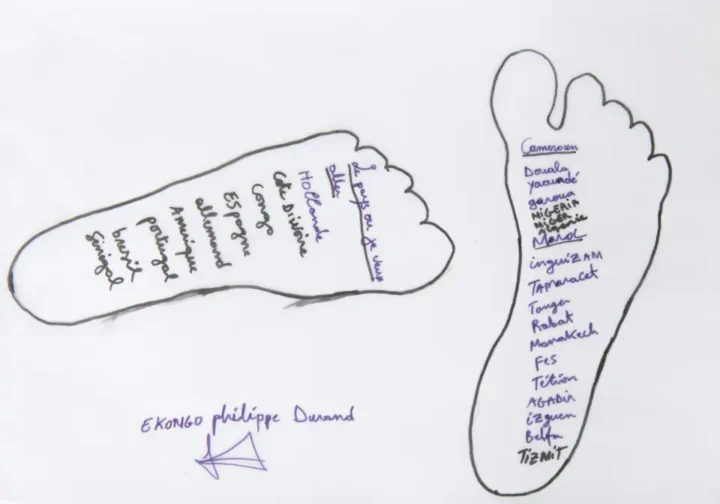 Le pays ou je veux
aller
Hollande
Cote Divoire
Congo
Espagne
allemand
Amérique
portugal
brésil
Sénégal
Cameroun
Douala
Yaoundé
garoua
NiGERiA
NiGER
Algeria
Marod
inguiZAM
TAMaracet
Tanger
Rabat
Marrakech
FES
Tétion
AGADIR
izguen
Belfa
TiZMiT
EKONGO philippe Durand